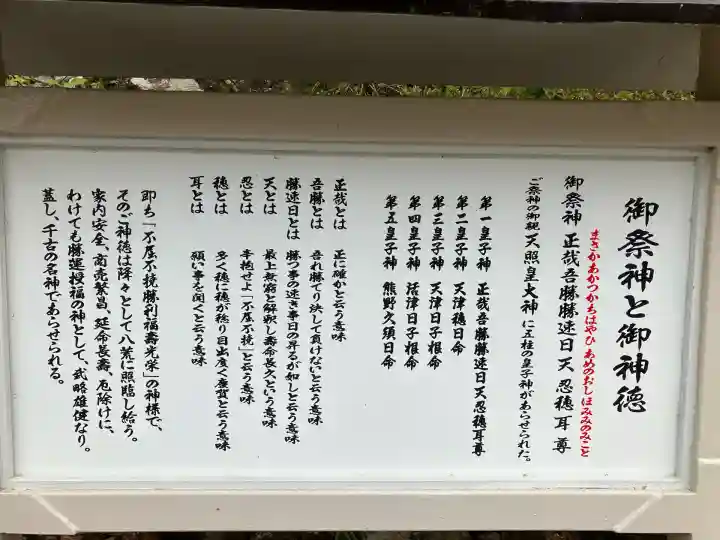 御祭神と御神徳
まさかあかつかちはやひ あめのおしほみみのみこと
御祭神 正哉吾勝勝速日天 忍穂耳尊
ご祭神の御親 天照皇大神 に五柱の皇子神があらせられた。
第一皇子神 正哉吾勝勝速日天忍穂耳尊
第二皇子神 天津穂日命
第三皇子神 天津日子根命
第四皇子神 活津日子根命
第五皇子神 熊野久須日命
正哉とは 正に確かと云う意味
吾勝とは 吾れ勝てり決して負けないと云う意味
勝速日とは 勝つ事の速き事日の昇るが如しと云う意味
天とは 最上無窮と解釈し壽命長久という意味
忍とは 辛抱せよ「不屈不撓」と云う意味
穂とは 安く穂に穂が稔り目出度く慶賀と云う意味
耳とは 願い事を聞くと云う意味
即ち「不屈不撓勝利福壽光栄」の神様で、
そのご神徳は隆々として八荒に照臨し給う。
家内安全、商売繁昌、延命長壽、厄除けに、
わけても勝運授福の神として、武略雄健なり。
蓋し、千古の名神であらせられる。